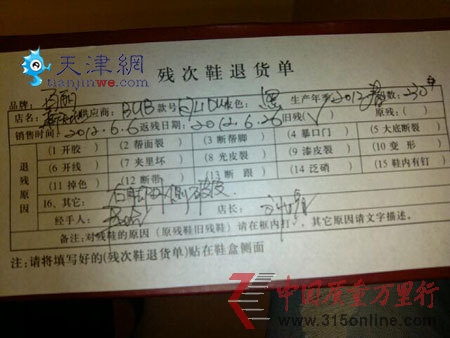 天津網
tianjinwe.com
残次鞋退货单
品牌： 百丽 生产年季： 2012春 码数： 230#
店名： 供应商： BUB 款号： 颜色： 黑
销售时间： 2012.6.6 返残日期： 2012.6.26 旧残( √ 原残：
退残原因
(1 开胶 (2 帮面裂 (3 断帮脚 (4 暴口门 (5 大底断裂
(6 开线 (7 夹里坏 (8 光皮裂 (9 漆皮裂 (10 变 形
(11 掉色 (12 断带 (13 断 跟 (14 泛硝 (15 鞋内有钉
16、其它： 右 内侧破皮
经手人： 店长：
备注：对残鞋的原因（原残鞋旧残鞋）请在框内打√ 其它原因请文字描述。
注：请将填写好的(残次鞋退货单)贴在鞋盒侧面
中国质量万里行
www.315online.com